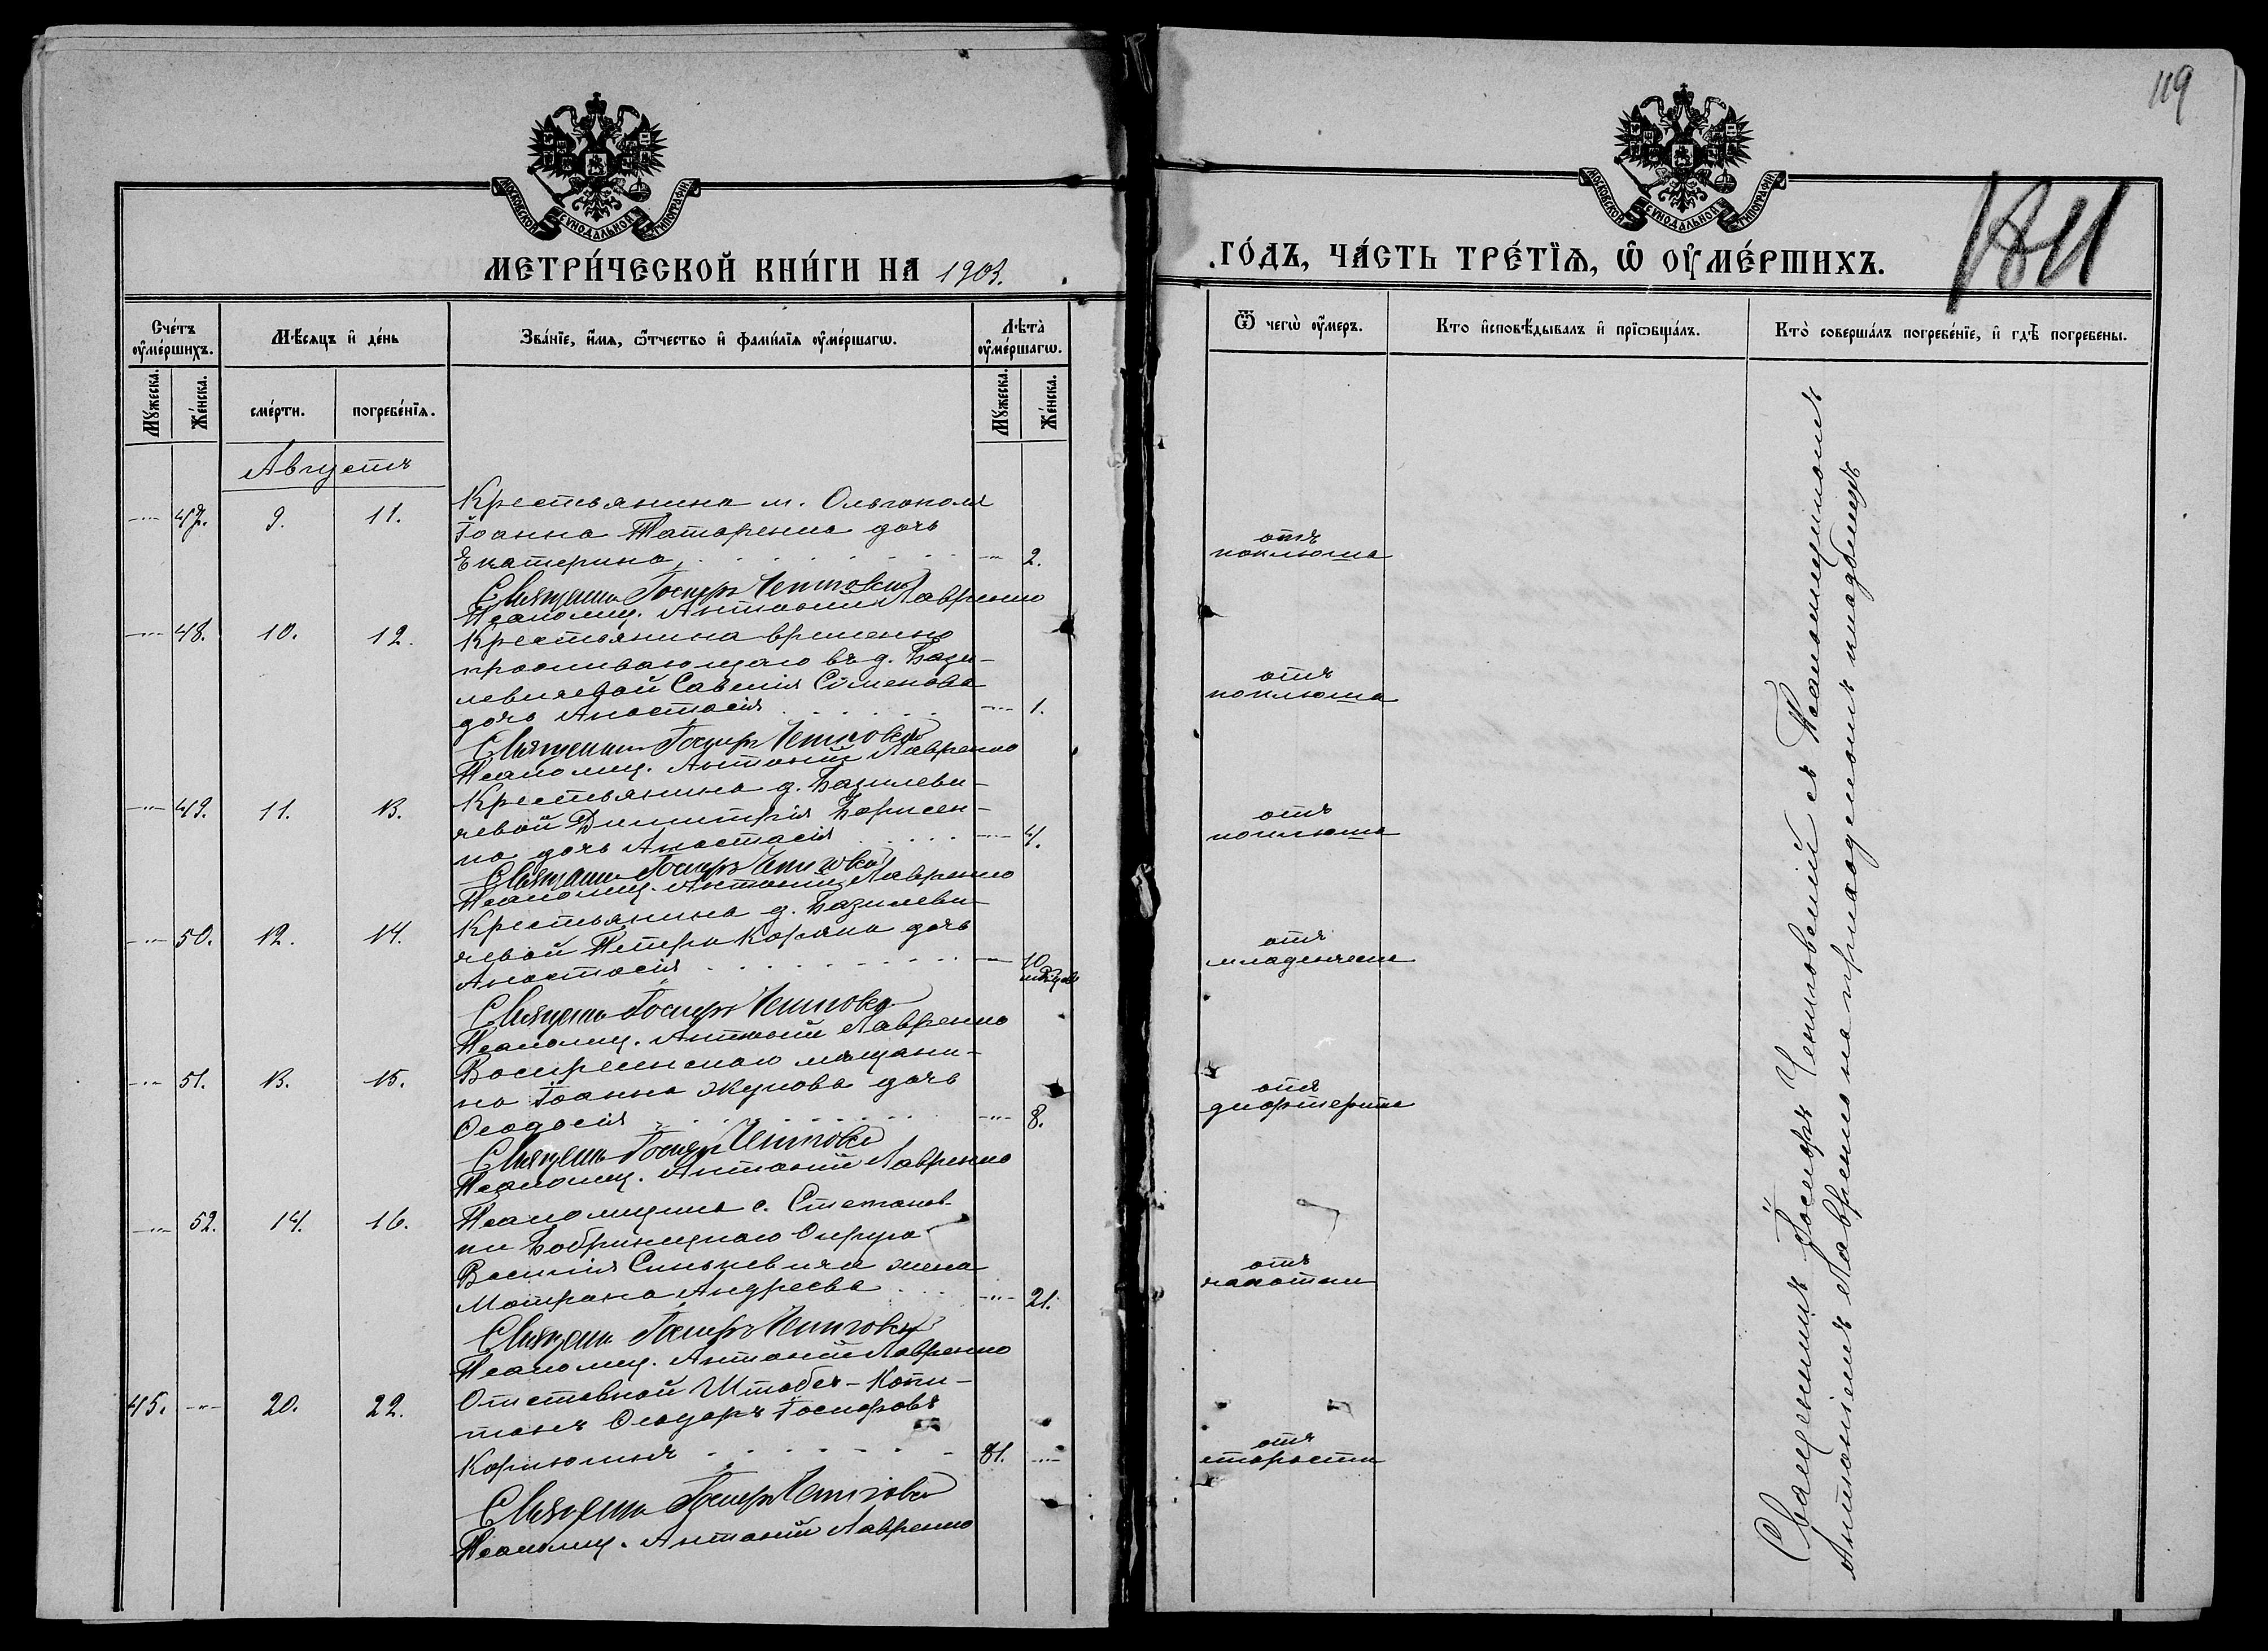 119
МОСКОВСКОЙ СѴНОДАЛЬНОЙ ТИПОГРАФІИ
МОСКОВСКОЙ СѴНОДАЛЬНОЙ ТИПОГРАФІИ
МЕТРИ́ЧЕСКОЙ КНИ́ГИ НА 1903.
ГО́ДЪ, ЧА́СТЬ ТРЕ́ТЇѦ, Ѡ҆ ОУ҆МЕ́РШИХЪ.
Сче́тъ ѹ҆ме́ршихъ.
Мѣ́сѧцъ и҆ де́нь
Зва́нїе, и҆́мѧ, ѻ҆́тчество и҆ фами́лїѧ ѹ҆ме́ршагѡ.
Лѣ́та ѹ҆ме́ршагѡ.
Му́жеска.
Же́нска.
сме́рти.
погребе́нїѧ.
Му́жеска.
Же́нска.
Ѿ чегѡ̀ ѹ҆́меръ.
Кто и҆сповѣ́дывалъ и҆ прїѡбща́лъ.
Кто̀ соверша́лъ погребе́нїе, и҆ гдѣ̀ погребены.
Августъ
47. 9. 11. Крестьянина м. Ольгополя
Іоанна Татаренка дочь
Екатерина 2. отъ
коклюша
Священникъ Іосифъ Чепиговскій
Псаломщ. Антоній Лавренко
48. 10. 12. Крестьянина временно
проживающаго въ д. Бази-
левичевой Савелія Сѝменова
дочь Анастасія 1. отъ
коклюша
Священникъ Іосифъ Чепиговскій
Псаломщ. Антоній Лавренко
49. 11. 13. Крестьянина д. Базилеви-
чевой Димитрія Борисен-
ко дочь Анастасія 4. отъ
коклюша
Священникъ Іосифъ Чепиговскій
Псаломщ. Антоній Лавренко
50. 12. 14. Крестьянина д. Базилеви-
чевой Петра Коряка дочь
Анастасія 10 отъ
младенческ
Священникъ Іосифъ Чепиговскій
Псаломщ. Антоній Лавренко
51. 13. 15. Воскресенскаго мѣщани-
на Іоанна Жукова дочь
Ѳеодосія 8. отъ
дифтерита
Священникъ Іосифъ Чепиговскій
Псаломщ. Антоній Лавренко
52. 14. 16. Псаломщика с. Степанов-
ки Бобринецкаго Округа
Василія Синькевича жена
Матрона Андреева 21. отъ
чахотки
Священникъ Іосифъ Чепиговскій
Псаломщ. Антоній Лавренко
45. 20. 22. Отставной Штабсъ-Капи-
танъ Ѳеодоръ Іосифовъ
Корнюшинъ 81. отъ
старости
Священникъ Іосифъ Чепиговскій
Псаломщ. Антоній Лавренко
Священникъ Іосифъ Чепиговскій съ Псаломщикомъ
Антоніемъ Лавренко на приходскомъ кладбищѣ